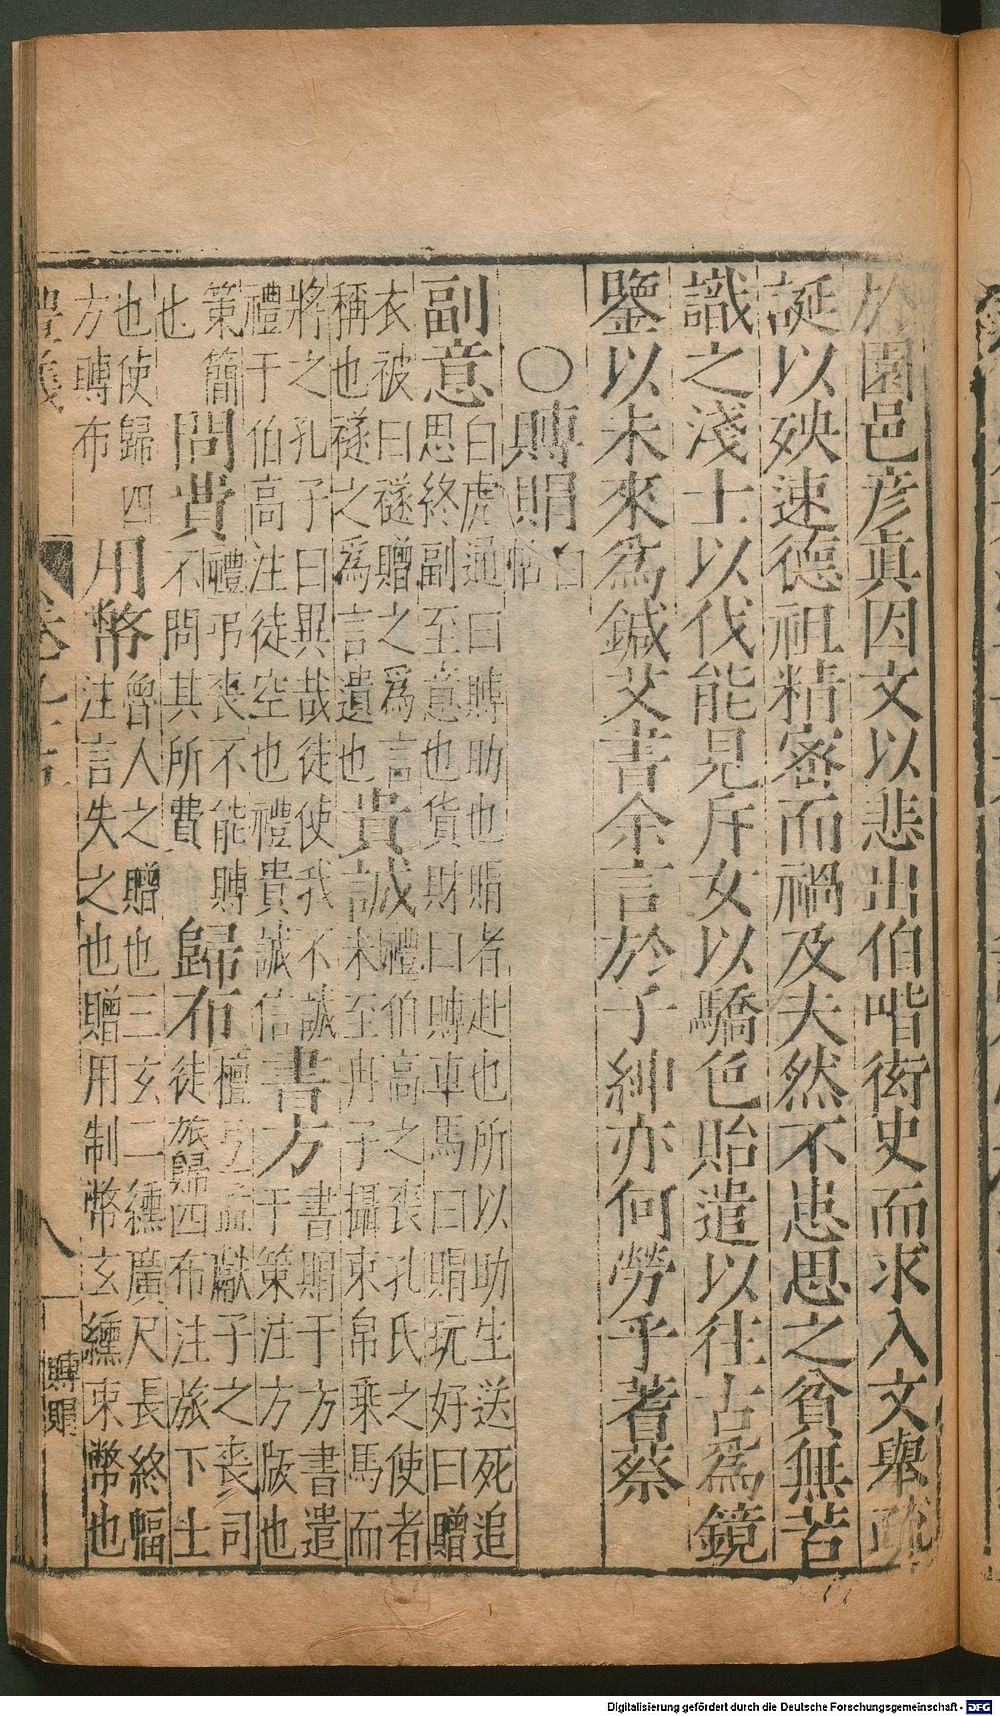 於園邑彦眞因文以悲出伯喈衒史而求入文舉疏
誕以殃速德祖精密而禍及夫然不患思之貧無若
識之淺士以伐能見斥女以驕色貽遣以往古爲鏡
鑒以未來爲鍼艾書余言於子紳亦何勞乎蓍蔡
○賻賵
白帖
副意
白虎通曰賻助也賵者赴也所以助生送死追
思終副至意也貨財曰賻車馬曰賵玩好曰贈
衣被曰襚贈之爲言
稱也襚之爲言遺也
貴誠
禮伯高之喪孔氏之使者
未至冉子攝束帛乗馬而
將之孔子曰異哉徒使我不誠
禮于伯高注徒空也禮貴誠信
書方
書賵于方書遣
于策注方版也
策簡
也
問費
禮弔喪不能賻
不問其所費
歸布
檀弓孟獻子之喪司
徒旅歸四布注旅下士
也使歸四
方賻布
用幣
魯人之贈也三玄二纁廣尺長終幅
注言失之也贈用制幣玄纁束幣也
八
賻賵
Digitalisierung gefördert durch die Deutsche Forschungsgemeinschaft - DFG